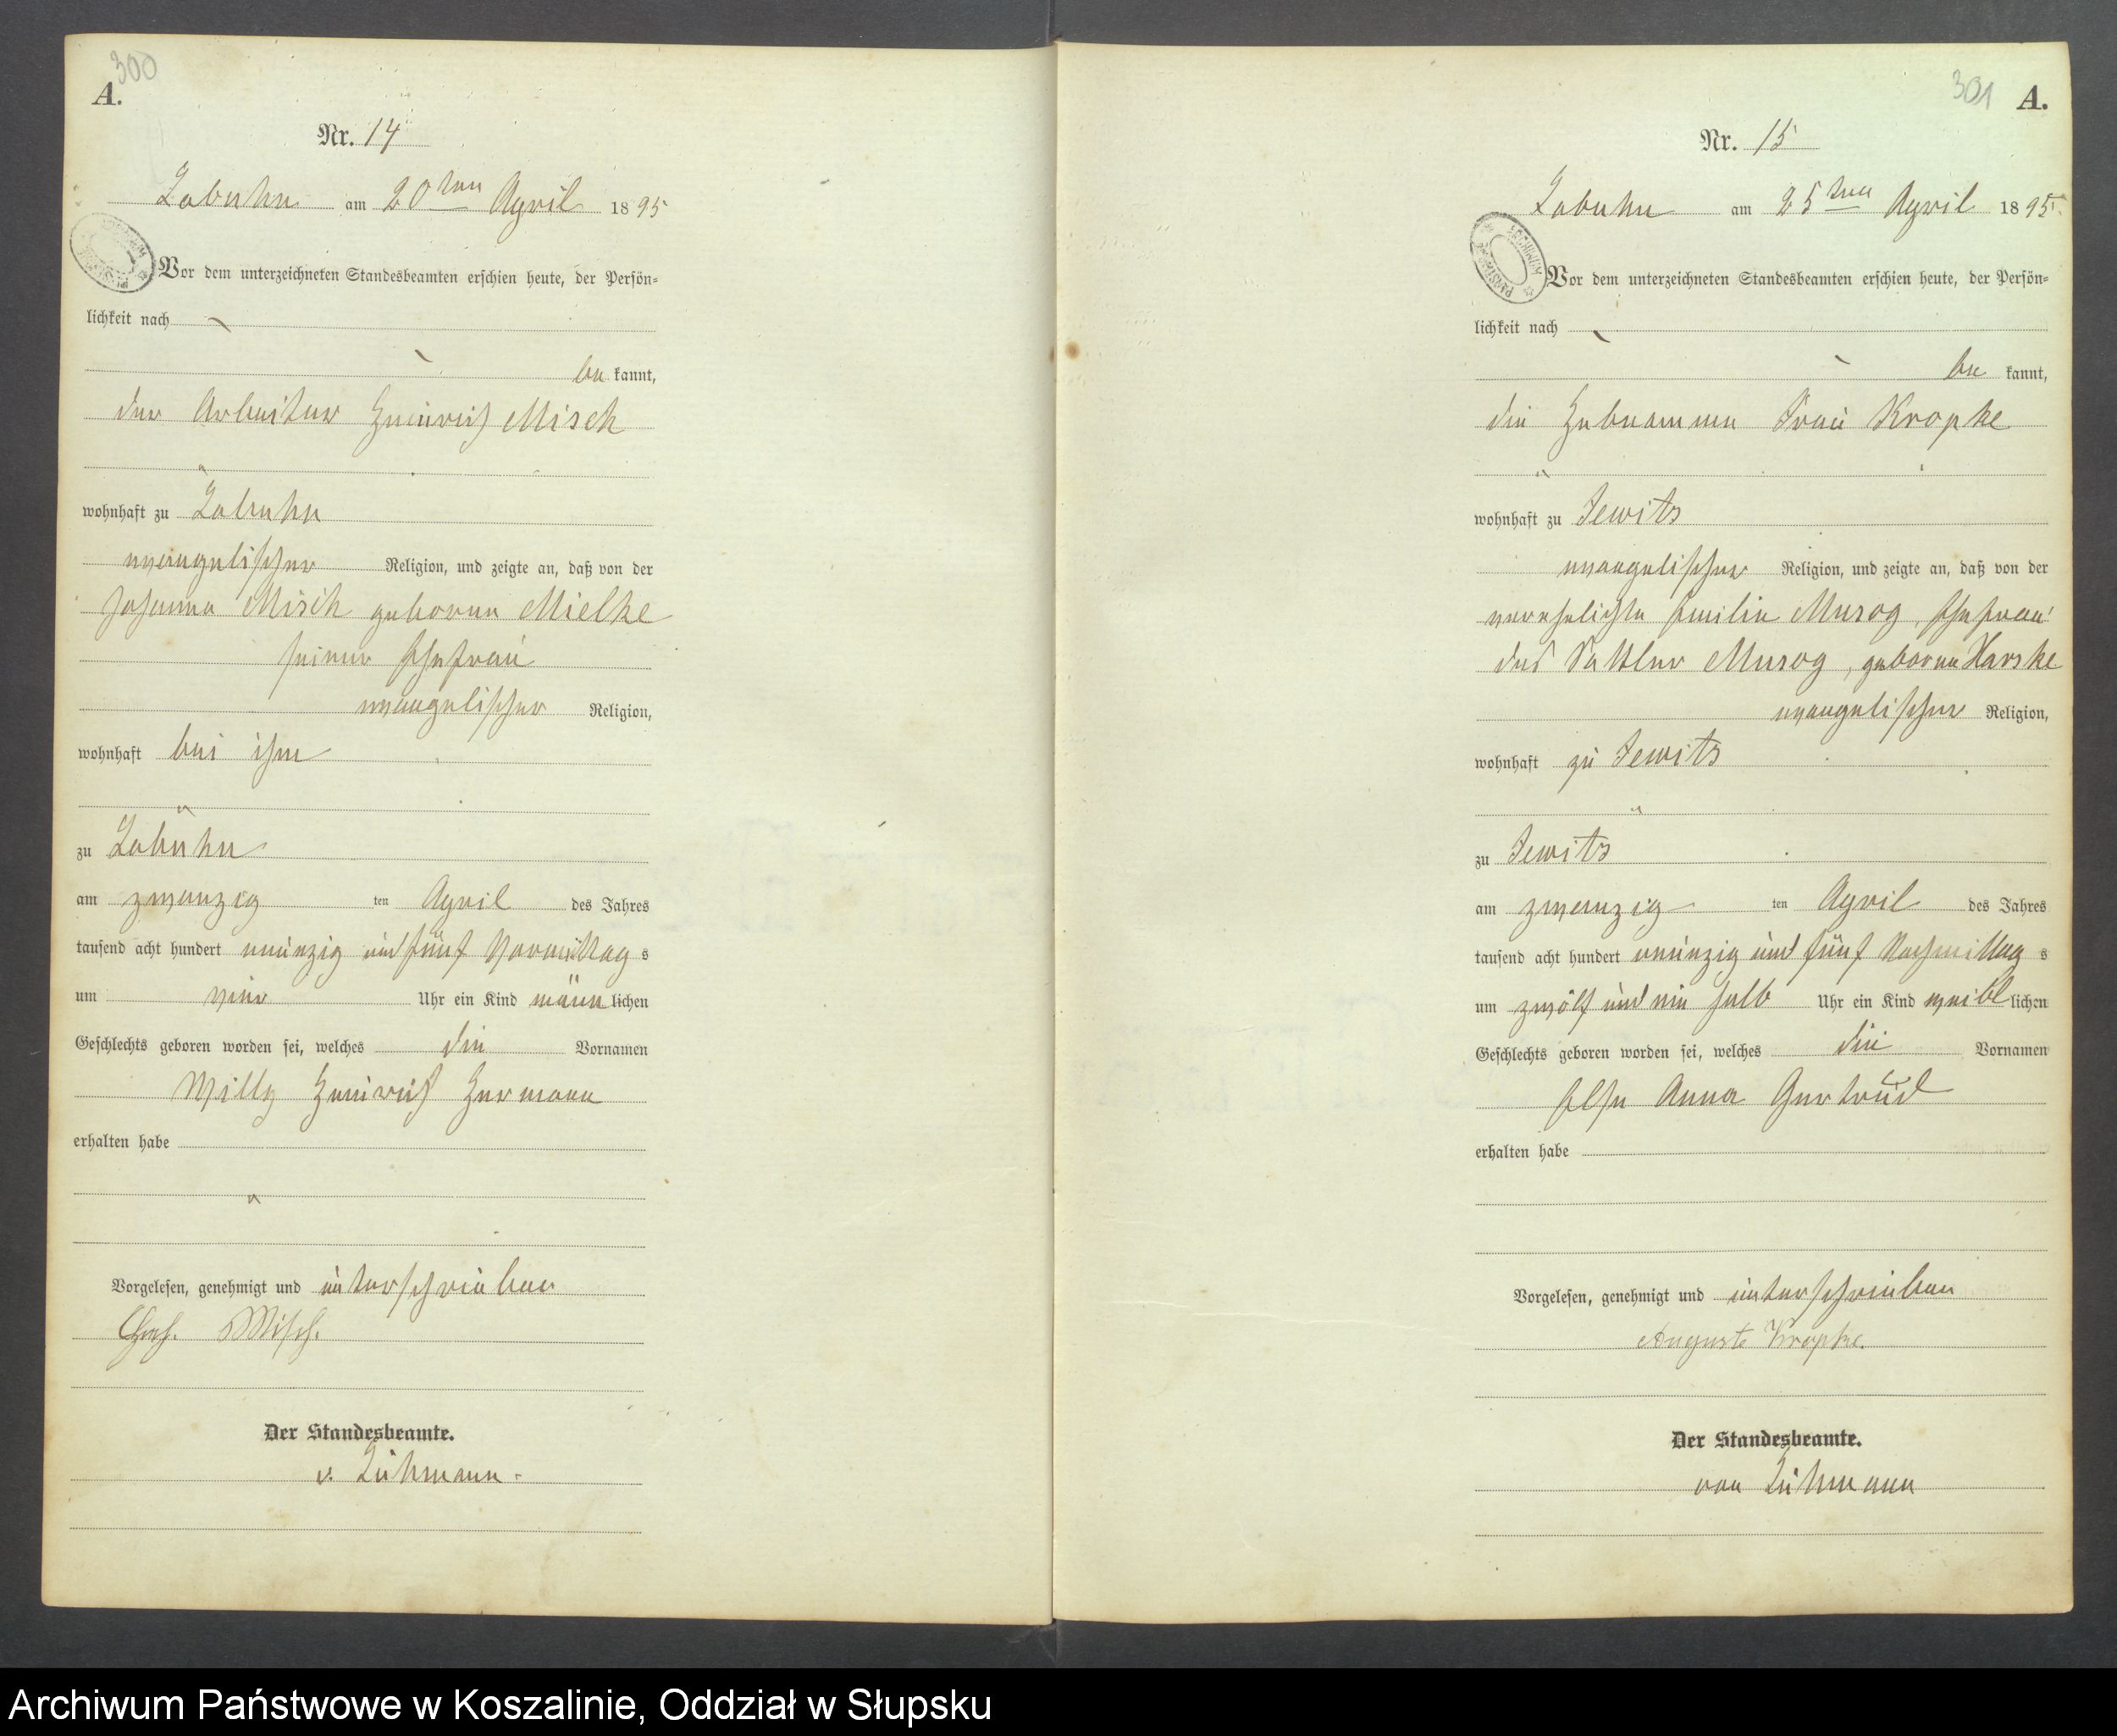 300
A.
Nr. 14
Labuhn am 20ten April 1895
Vor dem unterzeichneten Standesbeamten erschien heute, der Persön=
lichkeit nach
be kannt,
der Arbeiter Heinrich Misch
wohnhaft zu Labuhn
evangelischer Religion, und zeigte an, daß von der
Johanna Misch geborene Mielke
seiner Ehefrau
evangelischer Religion,
wohnhaft bei ihm
zu Labuhn
am zwanzig ten April des Jahres
tausend acht hundert neunzig und fünf Vormittag s
um vier Uhr ein Kind männ lichen
Geschlechts geboren worden sei, welches die Vornamen
Willy Heinrich Hermann
erhalten habe
Vorgelesen, genehmigt und unterschrieben
Misch.
Der Standesbeamte.
v. Lühmann.
301 A.
Nr. 15
Labuhn am 25ten April 1895.
ARCHIWUM
Vor dem unterzeichneten Standesbeamten erschien heute, der Persön=
lichkeit nach
be kannt,
die Hebeamme Frau Kropke
wohnhaft zu Jewitz
evangelischer Religion, und zeigte an, daß von der
verehelichte Emilie Mursog, Ehefrau
des Sattler Mursog, geborene Harske
evangelischer Religion,
wohnhaft zu Jewitz
zu Jewitz
am zwanzig ten April des Jahres
tausend acht hundert neunzig und fünf Nachmittag s
um zwölf und ein halb Uhr ein Kind weibl lichen
Geschlechts geboren worden sei, welches die Vornamen
Else Anna Gertrud
erhalten habe
Vorgelesen, genehmigt und unterschrieben
Auguste Kropke.
Der Standesbeamte.
von Lühmann
Archiwum Państwowe w Koszalinie, Oddział w Słupsku